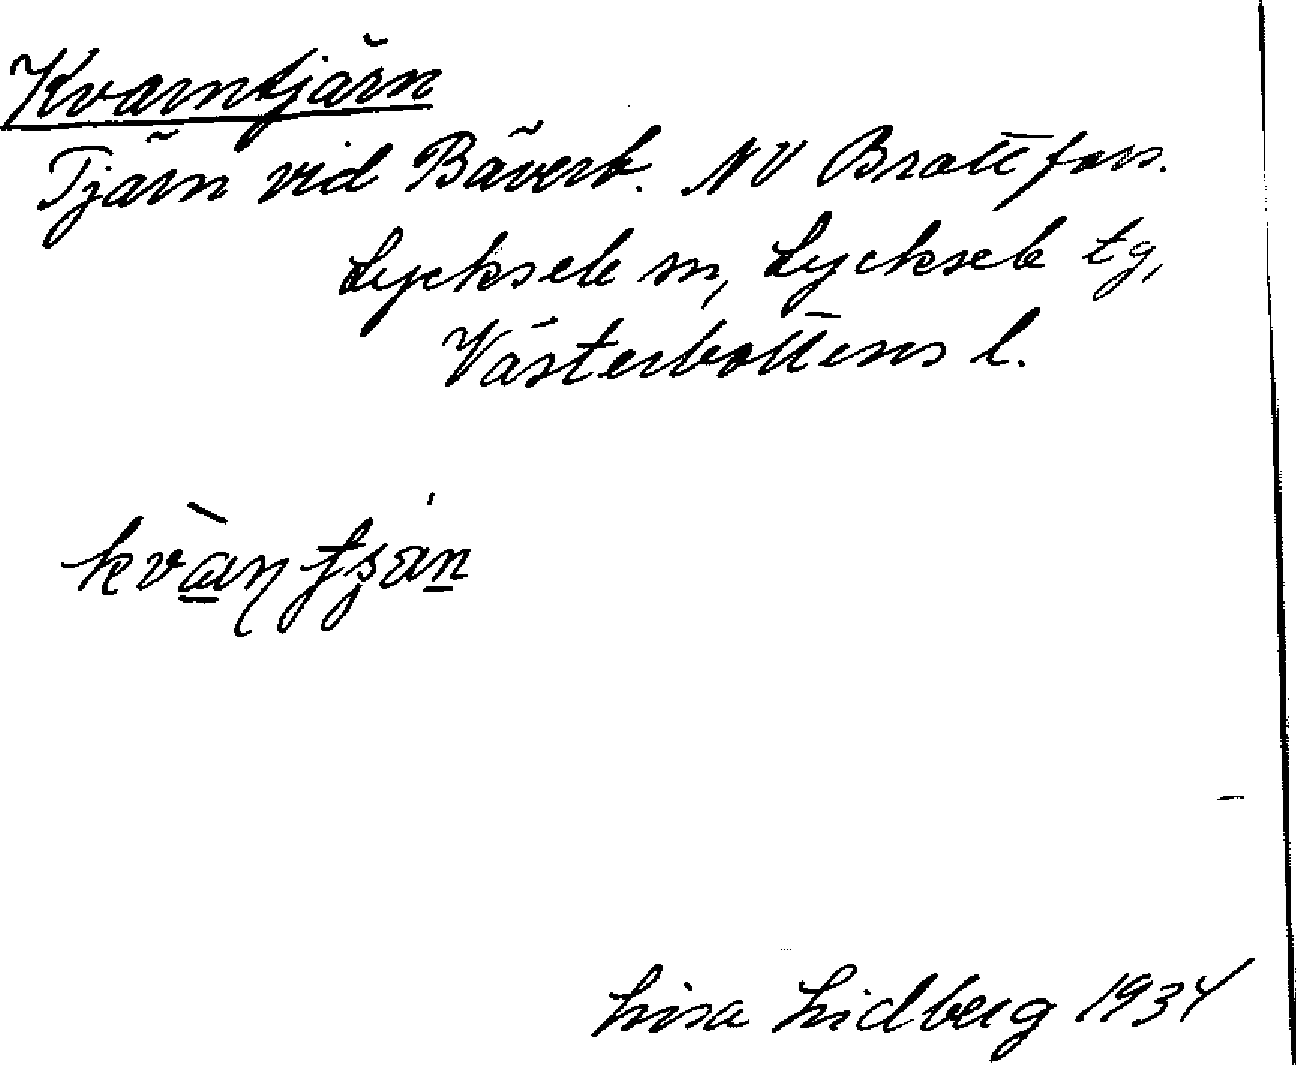 Kvarntjärn
Tjärn vid Bäverb. NV Brattfors.
Lycksele sn, Lycksele tg,
Västerbottens l.
Lisa Lidberg 1934